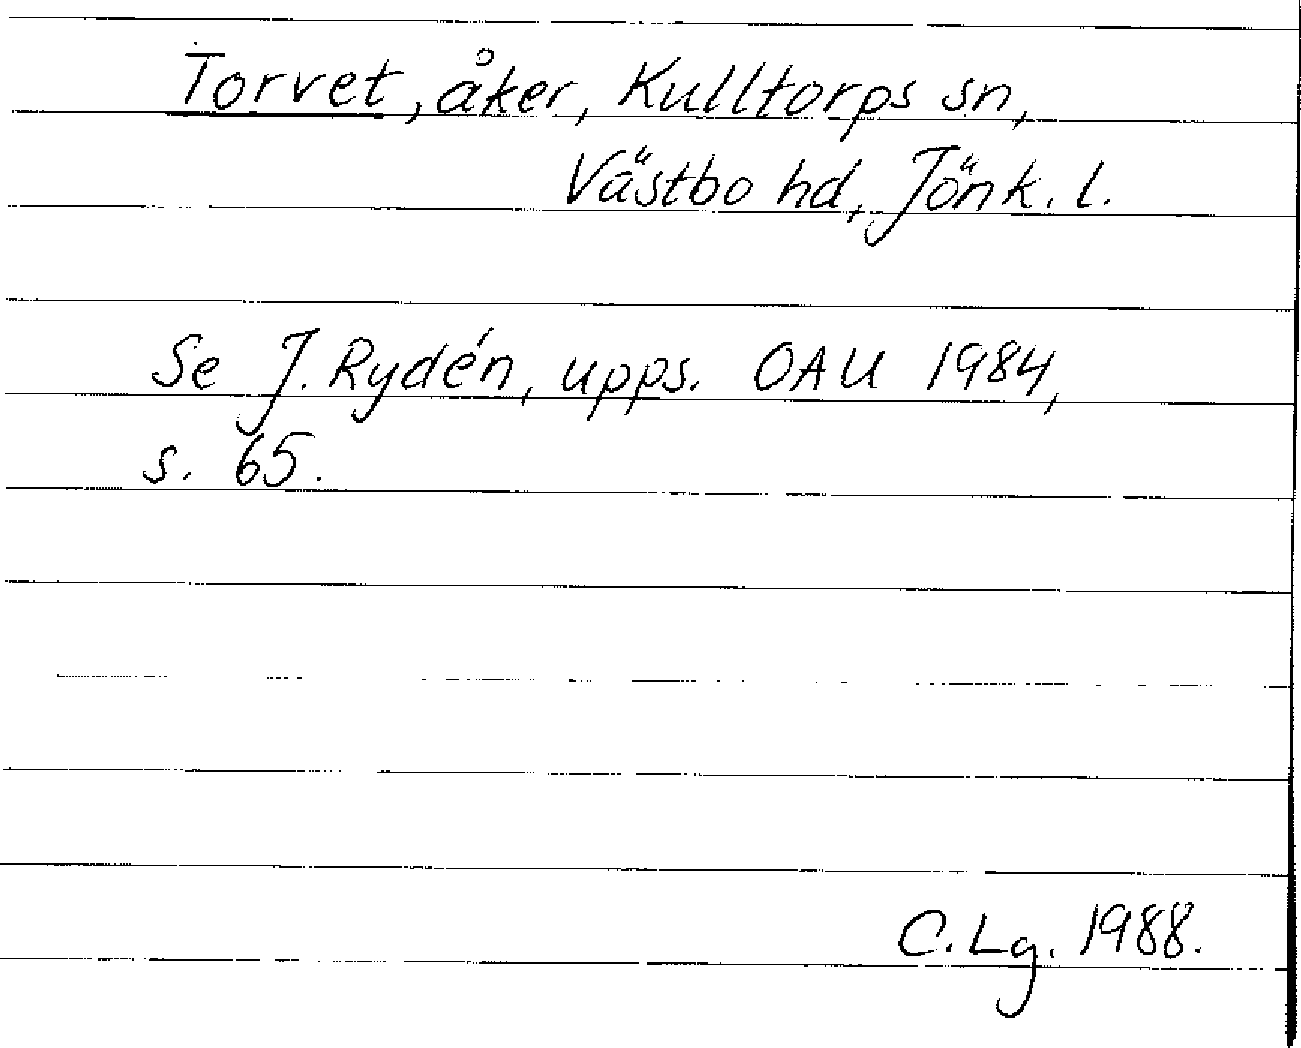 Torvet, åker, Kulltorps sn,
Västbo hd, Jönk. l.
Se J. Rydén, upps. OAU 1984,
s. 65.
C. Lg. 1988.